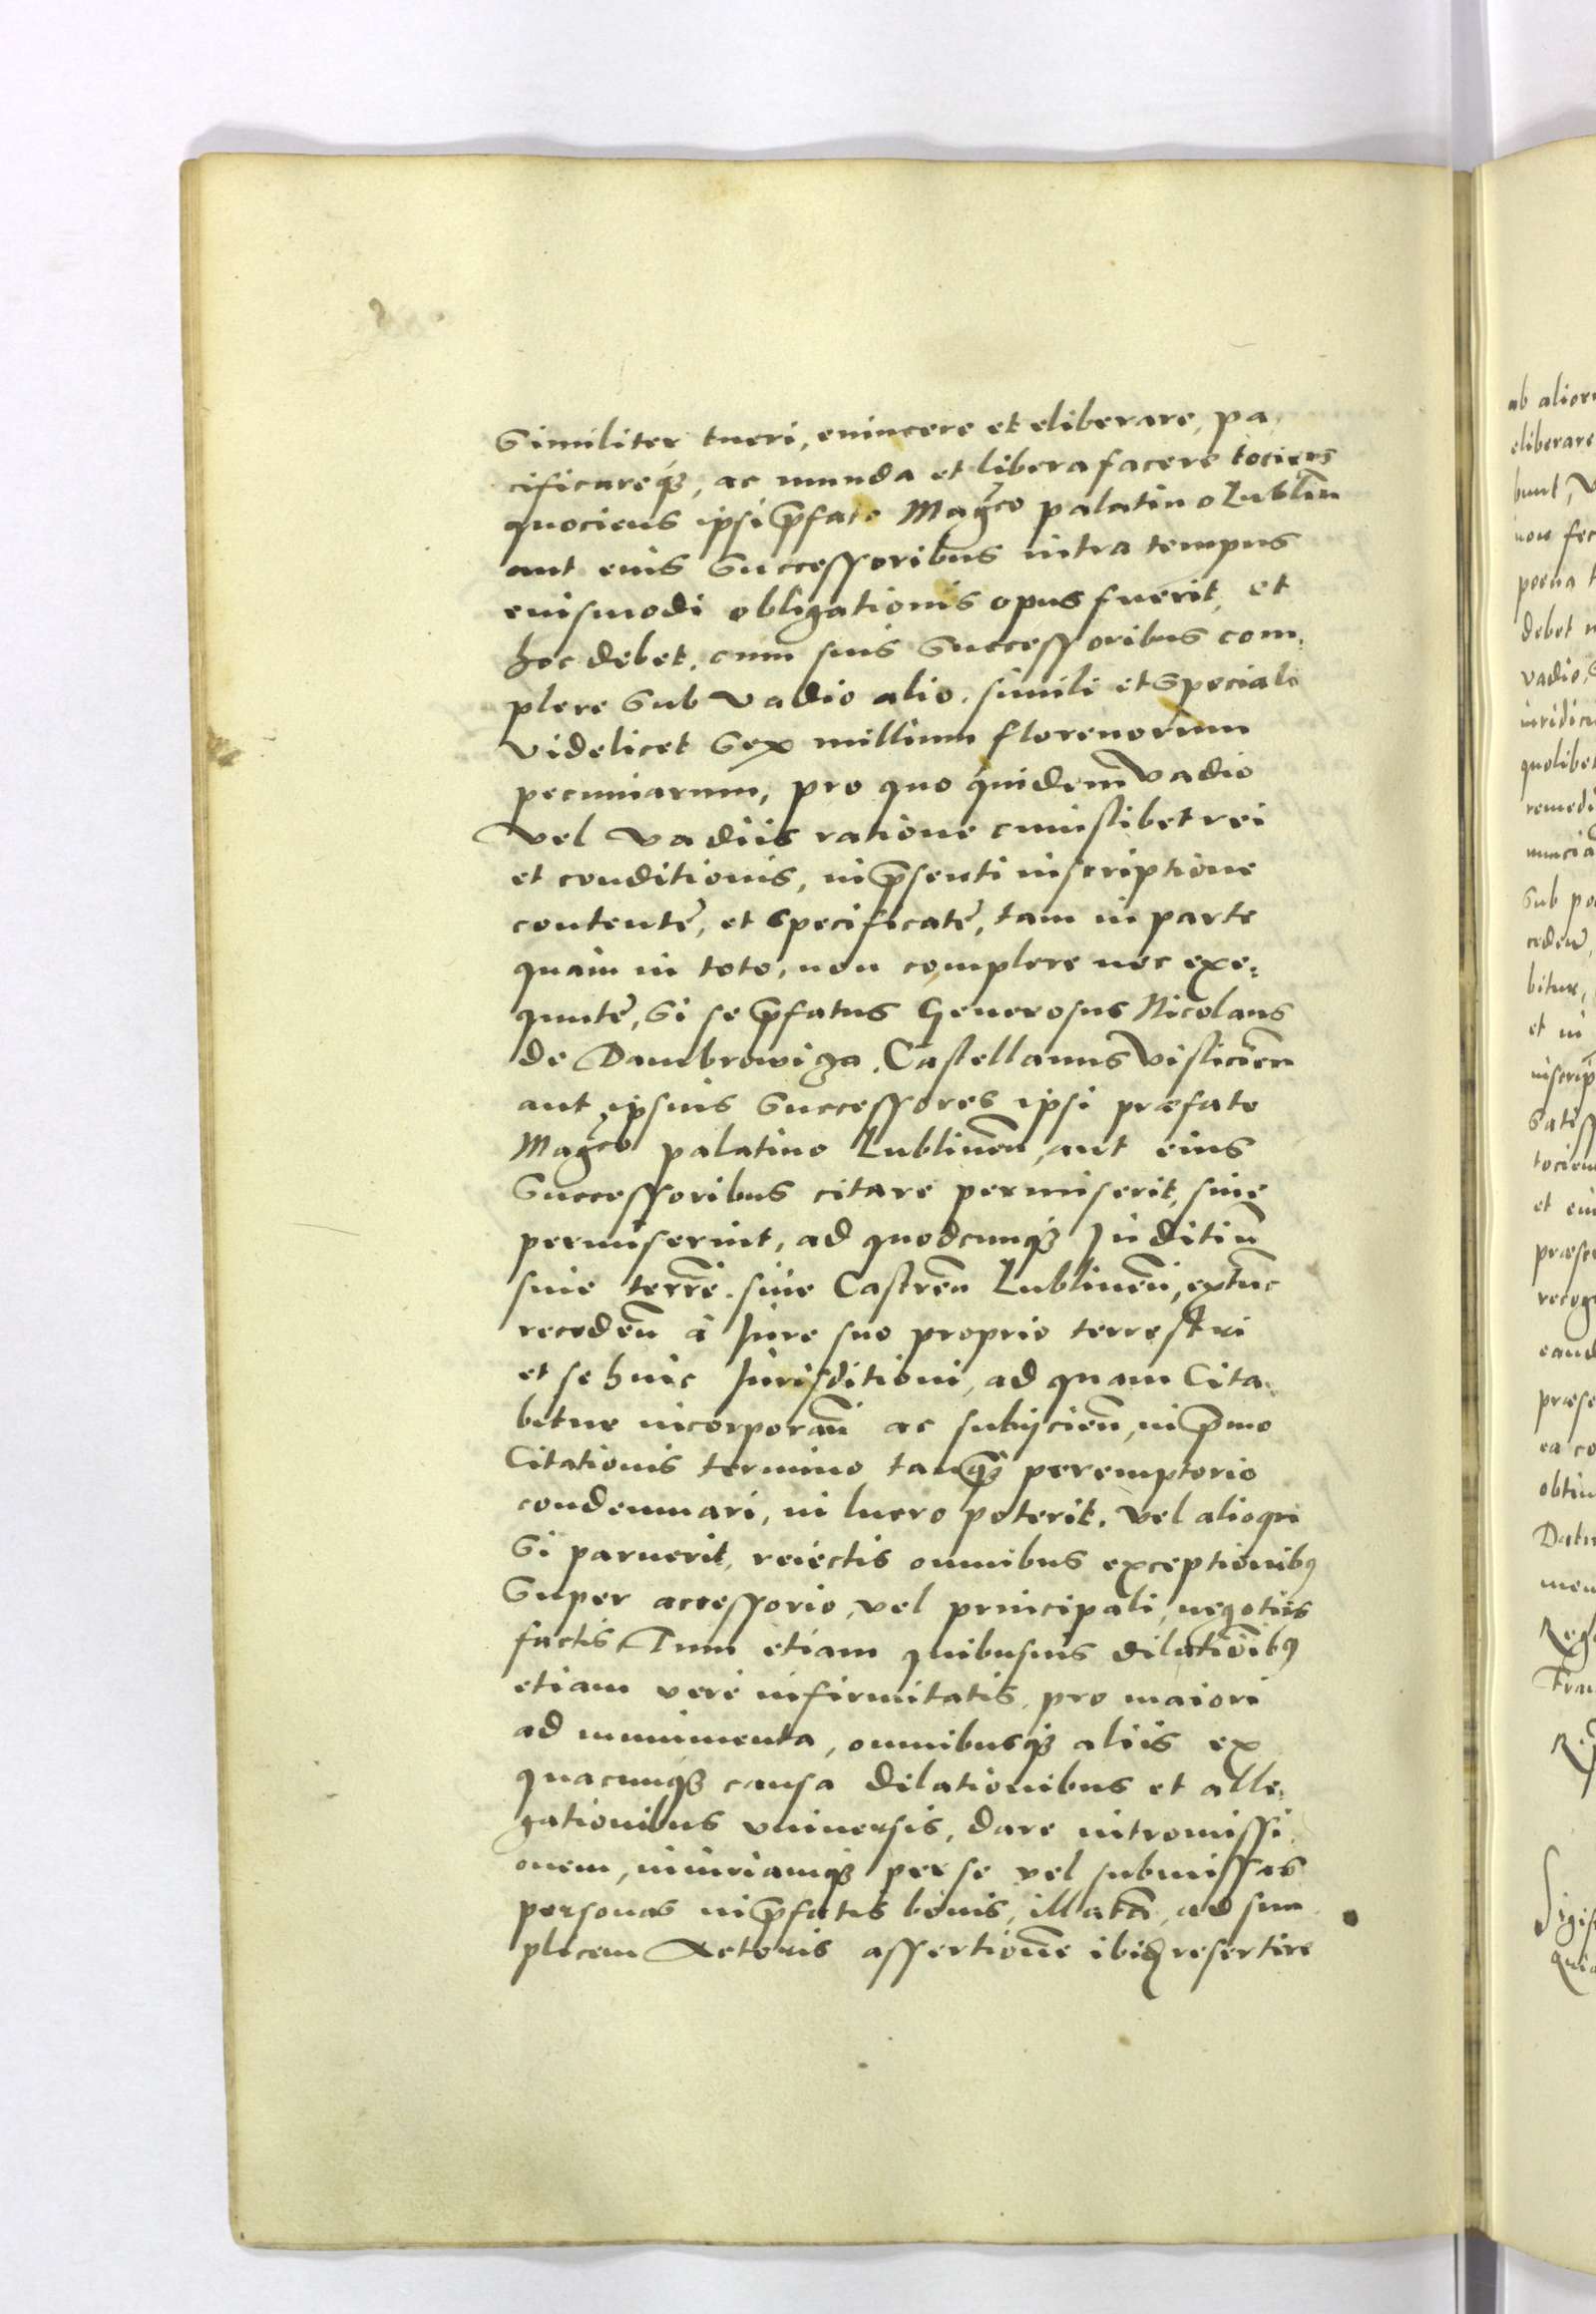 Similiter tueri, euincere et eliberare, pa,
cificareq[ue], ac munda et libera facere tociens
quociens ipsi p̄fato Magco palatino Lublin̄
aut eius Successoribus intra tempus
euismodi obligationis opus fuerit, et
hoc debet, cum suis Successoribus com,
plere Sub vadio alio, simili et Speciali
videlicet Sex millium florenorum
pecuniarum, pro quo quidem vadio
vel vadiis ratione cuiuslibet rei
et conditionis, in p̄senti inscriptione
contentę, et Specificatę, tam in parte
quam in toto, non complere nec exe,
quutę, Si se p̄fatus Generosus Nicolaus
de Dambrowiza, Castellanus Vislicien̄
aut ipsius Successores ipsi præfato
Magco palatino Lublinen̄, aut eius
Successoribus citare permiserit, siue
permiserint, ad quodcunq[ue] Juditiū
siue terrē, siue Castren̄ Lublinen̄, extūc
receden̄ à Jure suo proprio terrestri
et se huic Jurisditioni, ad quam Cita,
bitur incorporan̄ ac subijcien̄, in p̄mo
Citationis termino, tanq[uam] peremptorio
condemnari, in lucro poterit, vel alioqui
Si paruerit, reiectis omnibus exceptionib[us]
Super accessorio, vel principali, negotiis
factis, Tum etiam quibusuis dilationib[us]
etiam verę infirmitatis, pro maiori
ad munimenta, omnibusq[ue] aliis ex
quacunq[ue] causa dilationibus et alle,
gationibus vniuersis, dare intromissi,
onem, iniuriamq[ue] per se vel submissas
personas in p̄fatis bonis, illatā, ad sim
plicem Actoris assertionē ibid[em] resertire
ab alior
eliberare
bunt, v
non fec
poena t
debet
vadio,
iuridic
quolibet
remedi
Sub po
ceden̄,
bitur,
et in
inscrip
satis
tocien
et eiu
præse
recog
eand
præse
ea co
obtin
Datu
men
Reg
Fran
Sigis
Quia